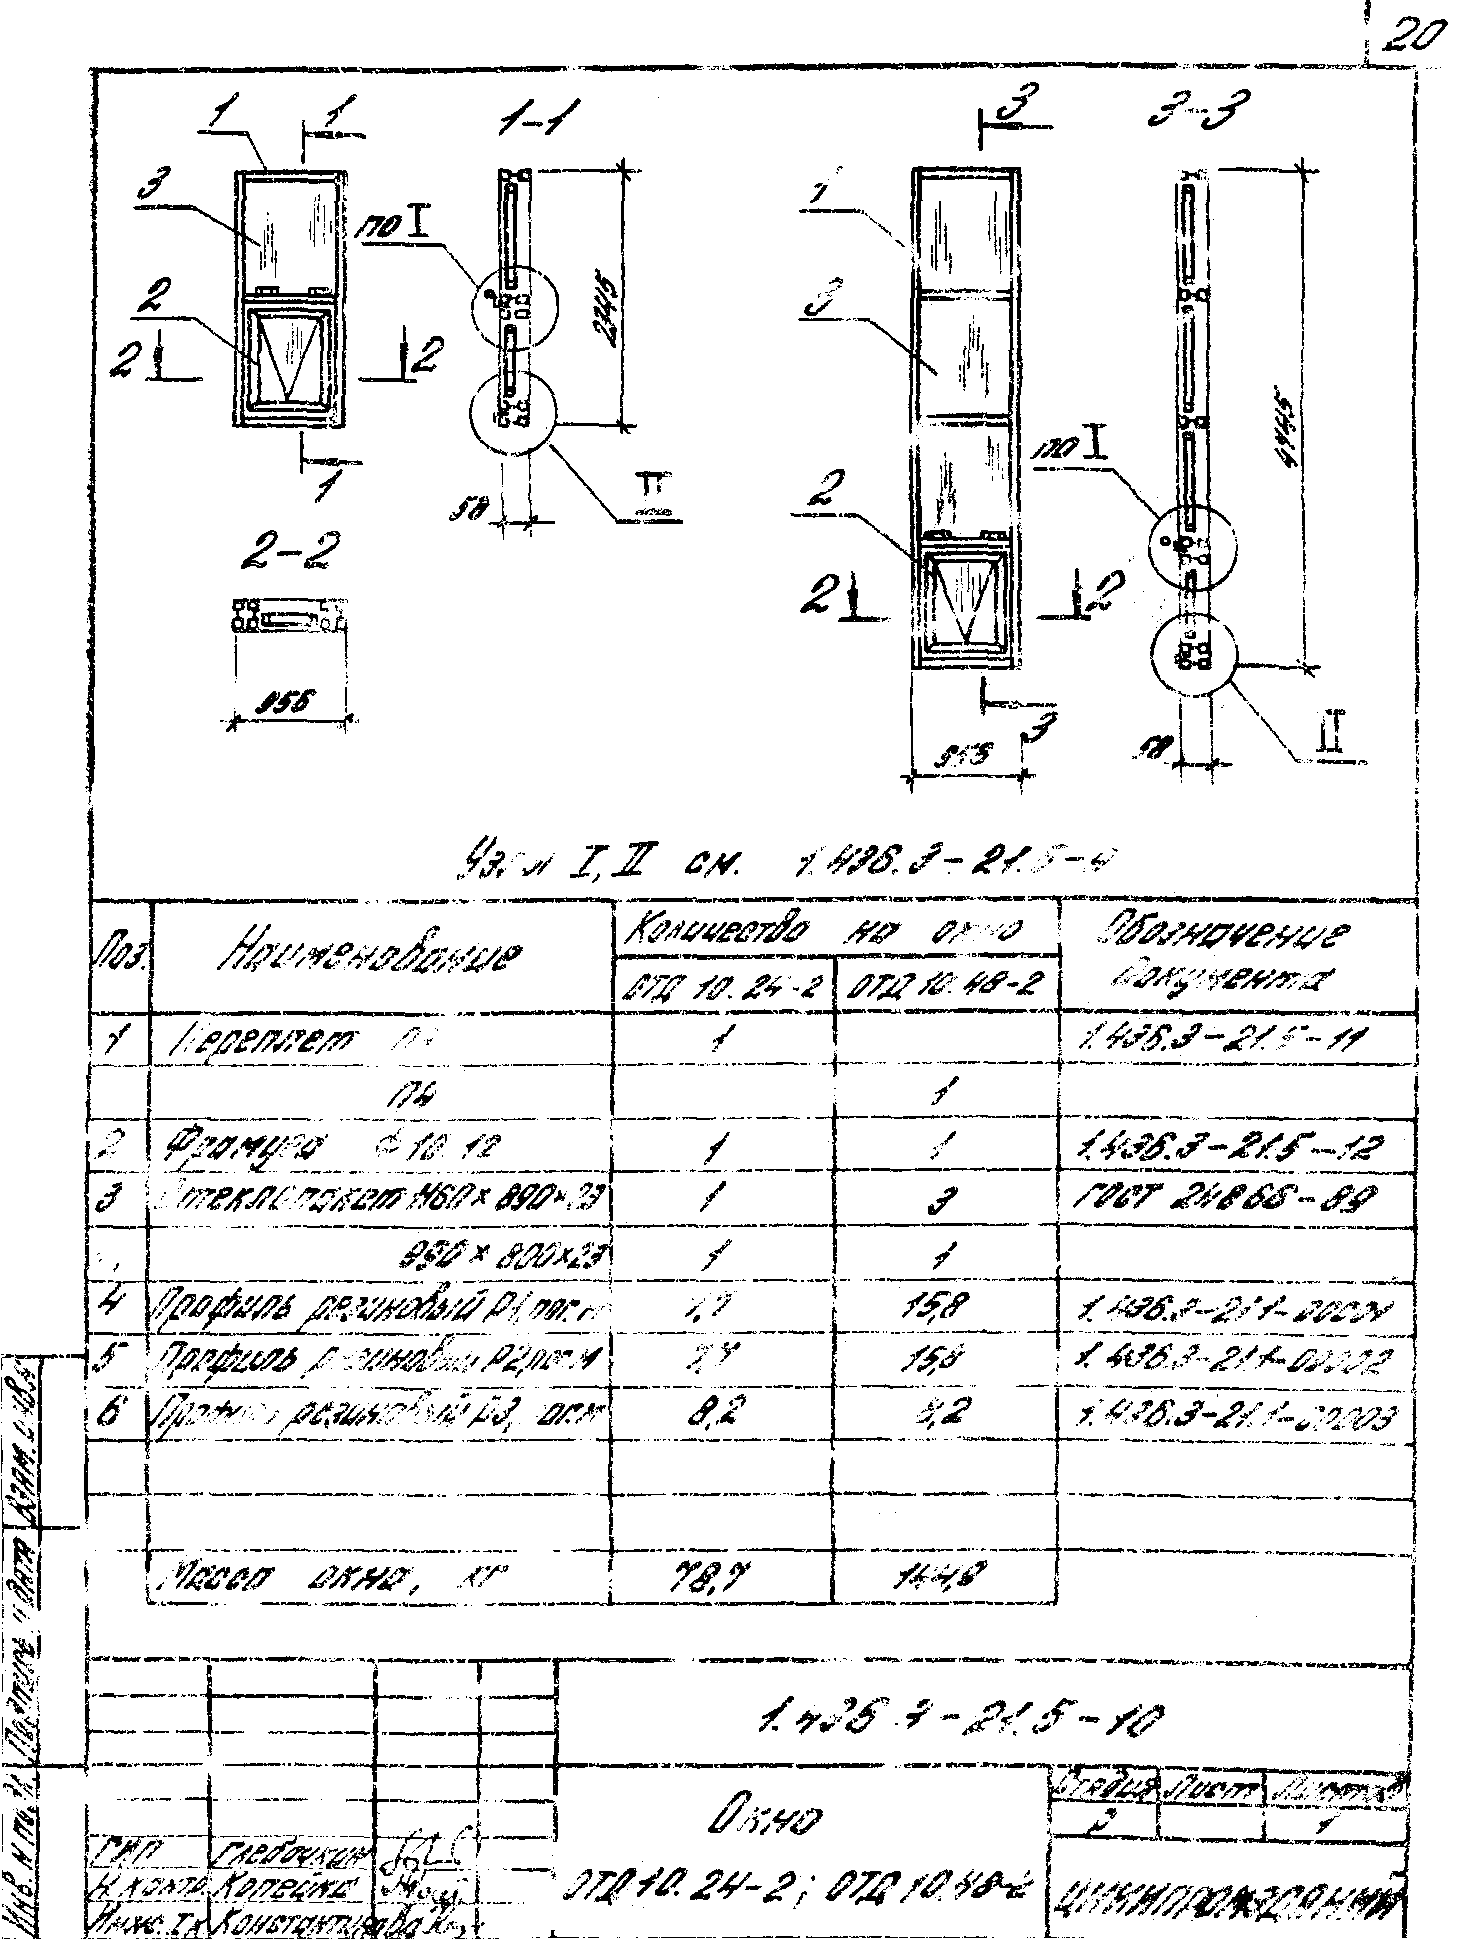 20
1 1 1-1
3
по I
2
2 2
2345
1
58
II
2-2
956
3 3-3
1
3
по I
2
2 2
4745
3
956
58
II
Узлы I, II см. 1.436.3-21.5-
Поз. Наименование Количество на окно Обозначение документа
ОТД 10.24-2 ОТД 10.48-2
1 Переплет 1 1.436.3-21.5-11
П4 1
2 Фрамуга Ф10.12 1 1 1.436.3-21.5-12
3 Стеклопакет 1160×890×23 1 3 ГОСТ 24866-89
990×800×23 1 1
4 Профиль резиновый Р1, пог.м 7,7 15,8 1.436.3-21.1-00001
5 Профиль резиновый Р2, пог.м 7,7 15,8 1.436.3-21.1-00002
6 Профиль резиновый Р3, пог.м 8,2 8,2 1.436.3-21.1-00003
Масса окна, кг 78,7 144,8
1.436.3-21.5-10
Окно
ОТД 10.24-2; ОТД 10.48-2
Стадия Лист Листов
Р 1
ЦНИИПРОМЗДАНИЙ
ГИП Глебочкин
Н.контр Копейко
Инж. I к Константинова
Взам. инв. №
Подпись и дата
Инв. № подл.